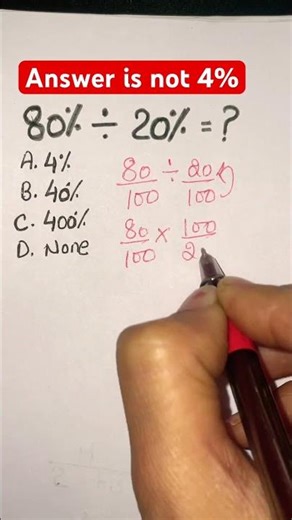 Answer is not 4%
80% ÷ 20% = ?
A. 4%
B. 40%
C. 400%
D. None
80/100 ÷ 20/100
80/100 × 100/2